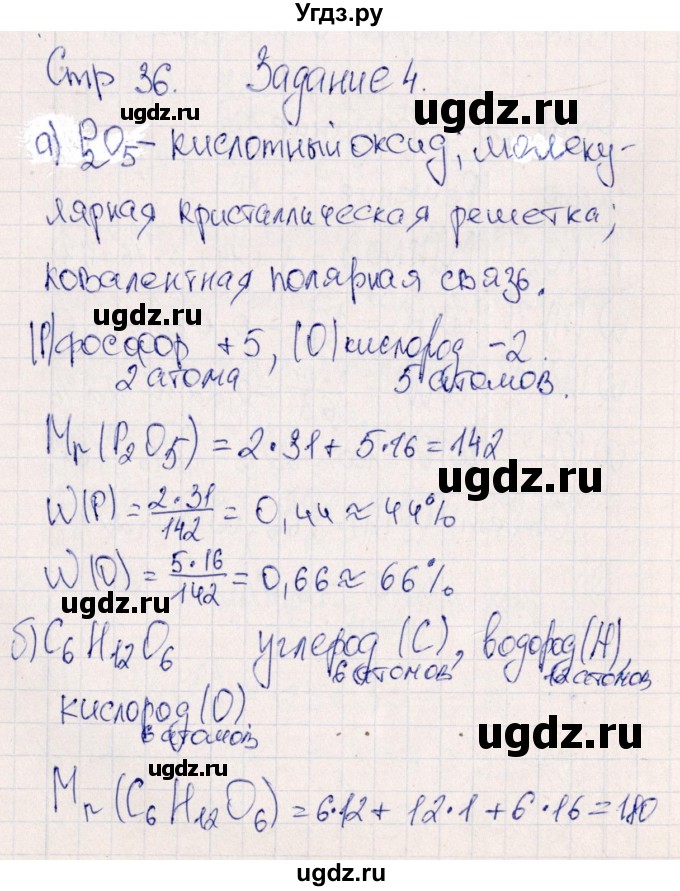 Угдз.ру
Стр 36. Задание 4.
ugdz.ru
ugdz.ru
а) P2O5 - кислотный оксид, молеку-
лярная кристаллическая решетка;
ковалентная полярная связь.
ugdz.ru
(P) фосфор +5, (O) кислород -2.
2 атома 5 атомов.
ugdz.ru
Mr(P2O5) = 2·31 + 5·16 = 142
W(P) = 2·31/142 = 0,44 ≈ 44%
ugdz.ru
W(O) = 5·16/142 = 0,66 ≈ 66%
ugdz.ru
ugdz.ru
б) C6H12O6 углерод (C), водород (H)
6 атомов 12 атомов
кислород (O)
6 атомов
ugdz.ru
ugdz.ru
Mr(C6H12O6) = 6·12 + 12·1 + 6·16 = 180
ugdz.ru
ugdz.ru